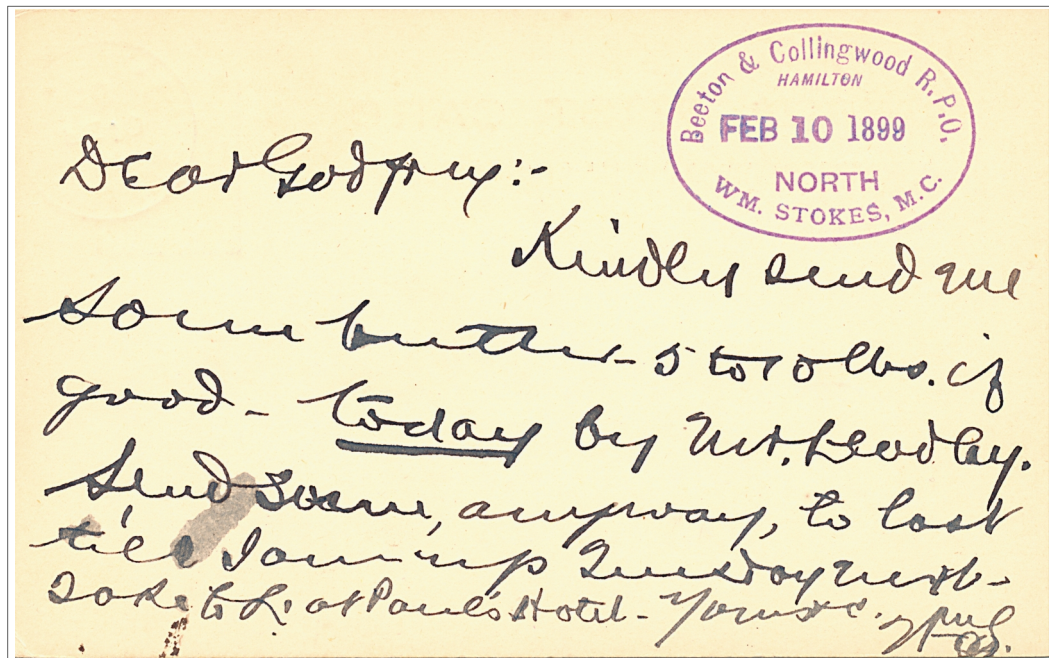 Beeton & Collingwood R.P.O.
HAMILTON
FEB 10 1899
NORTH
WM. STOKES, M.C.
Dear Godfrey:-
Kindly send me
some butter - 5 to 10 lbs. if
good - today by Mr.
Send some, anyway, to last
till I am up Tuesday next -
Take to L. at Paul's Hotel - Yours &c.